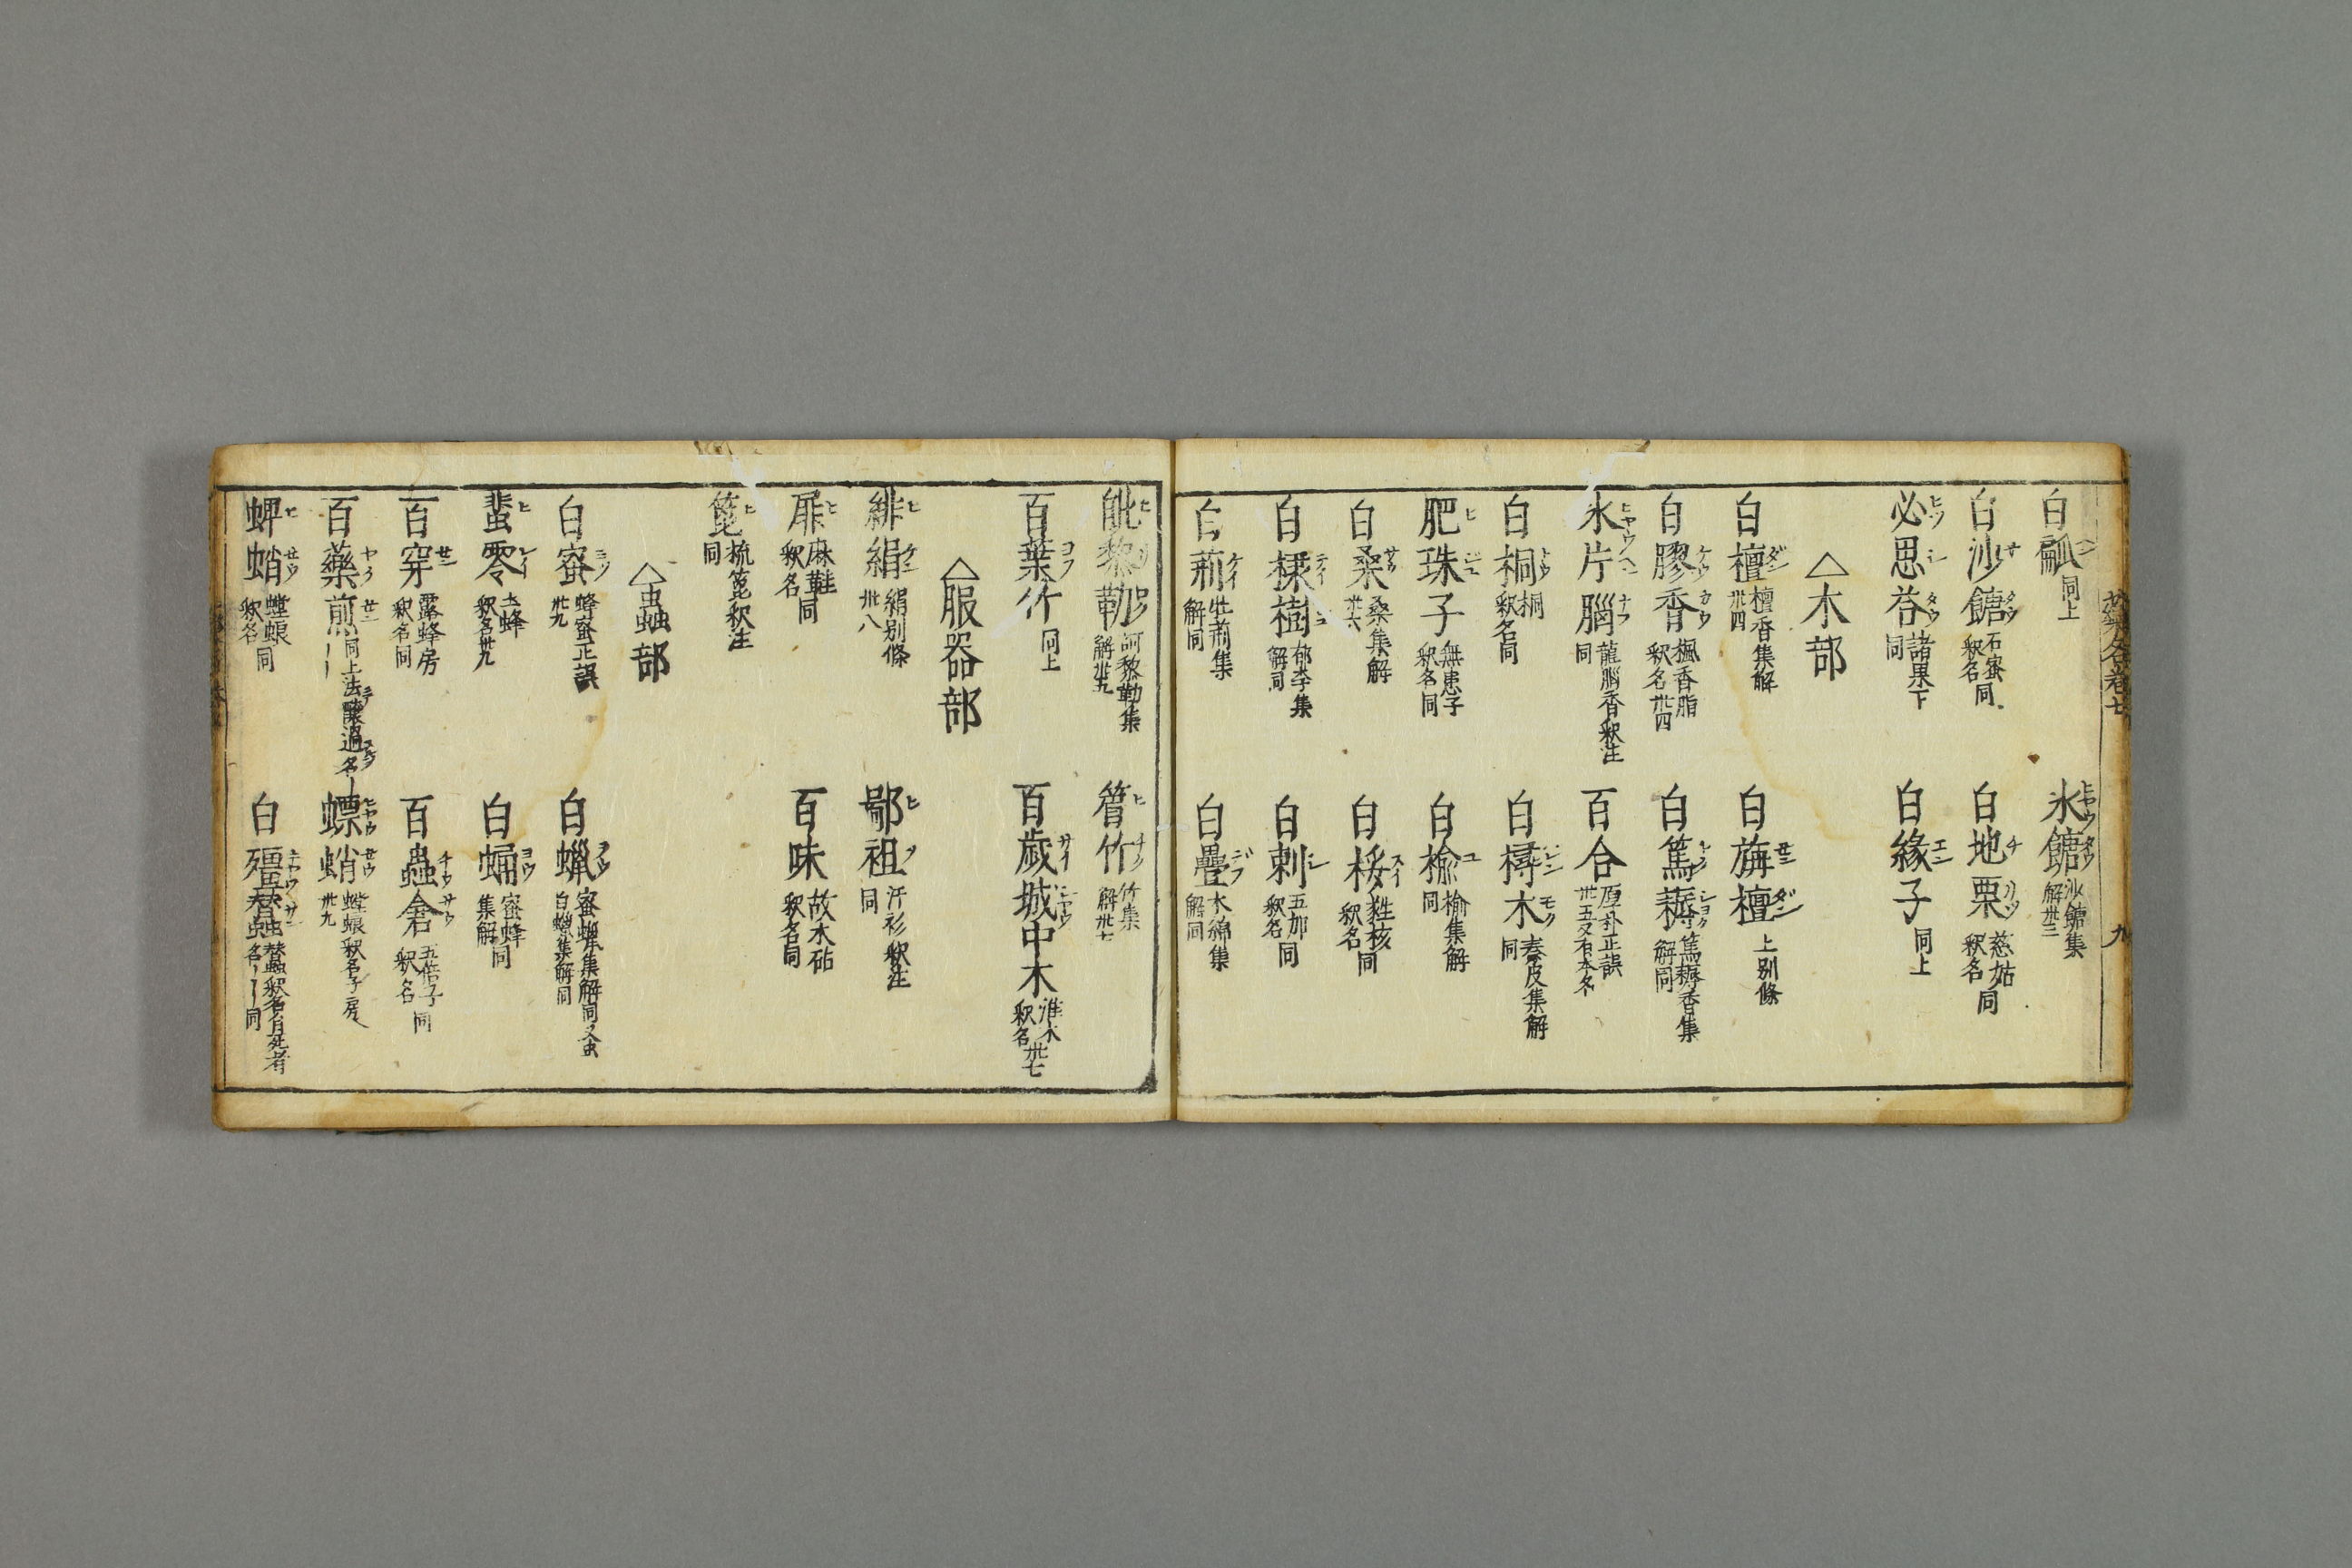 白瓤 同上
氷餹 沙餹集解卅三
白沙餹 石蜜釈名同
白地栗 慈姑釈名同
必思荅 諸果下同
白緣子 同上
△木部
白檀 檀香集解卅四
白旃檀 上別條
白膠香 楓香脂釈名卅四
白篤耨 篤耨香集解同
氷片腦 龍腦香釈注同
百合 厚朴正誤卅五又有本名
白桐 桐釈名同
白樳木 秦皮集解同
肥珠子 無患子釈名同
白楡 楡集解同
白桑 桑集解卅六
白桵 蕤核釈名同
白棣樹 郁李集解同
白刺 五加釈名同
白荊 牡荊集解同
白疊 木綿集解同
毗黎勒 訶黎勒集解卅五
篃竹 竹集解卅七
百葉竹 同上
百歳城中木 淮木釈名卅七
△服器部
緋絹 絹別條卅八
鄙袒 汗衫釈注同
屝 麻鞋釈名同
百味 故木砧釈名同
篦 梳篦釈注同
△虫部
白蜜 蜂蜜正誤卅九
白蠟 蜜蠟集解同又虫白蠟集解同
蜚零 土蜂釈名卅九
白蛹 蜜蜂集解同
百穿 露蜂房釈名同
百蟲倉 五倍子釈名同
百藥煎 同上法
螵蛸 螳蜋釈名子房卅九
蜱蛸 螳蜋釈名同
白殭蠶 蠶釈名自死者名ーーー同
九